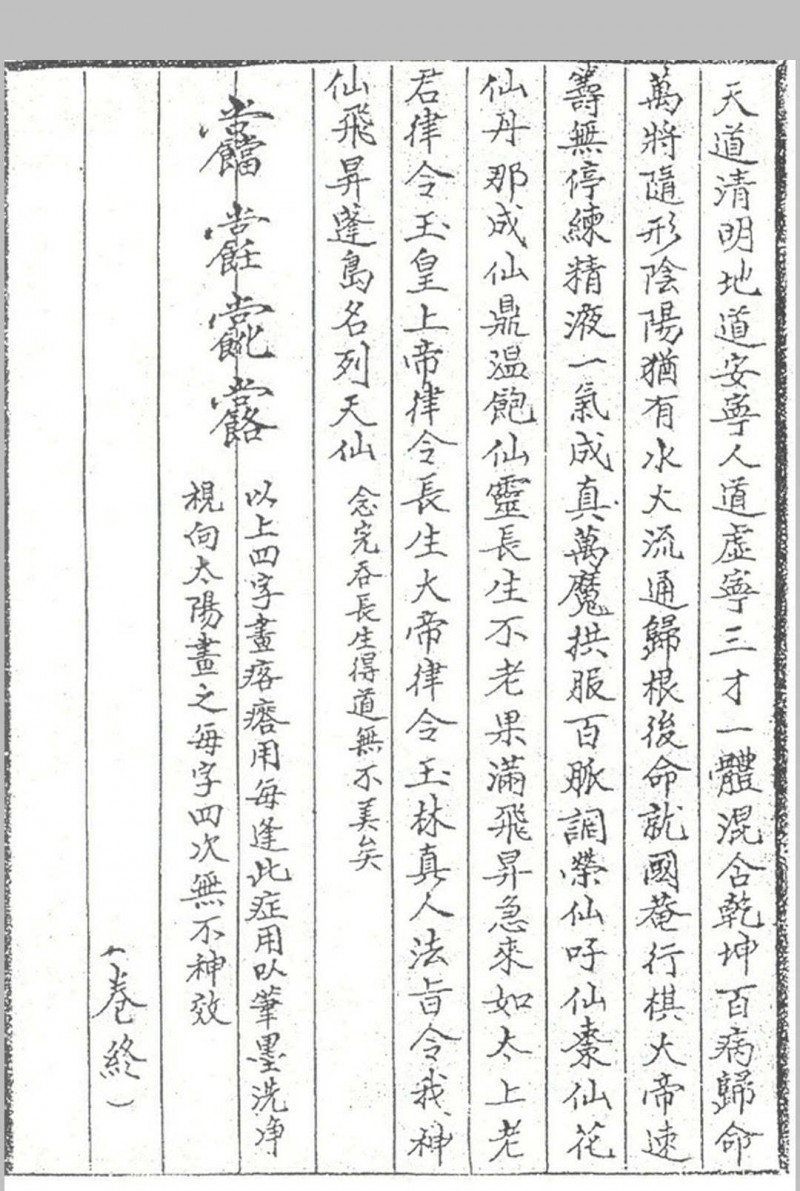 天道清明地道安寧人道虛寧三才一體混含乾坤百病歸命
萬將隨形陰陽猶有水火流通歸根後命就國菴行棋大帝速
籌無停練精液一氣成真萬魔拱服百脈調榮仙吁仙棗仙花
仙丹那成仙鼎溫飽仙靈長生不老果滿飛昇急來如太上老
君律令玉皇上帝律令長生大帝律令玉林真人法旨令我神
仙飛昇蓬島名列天仙 念完吞長生得道無不美矣
以上四字畫瘩用每逢此症用以筆墨洗净
視向太陽畫之每字四次無不神效
（卷終）